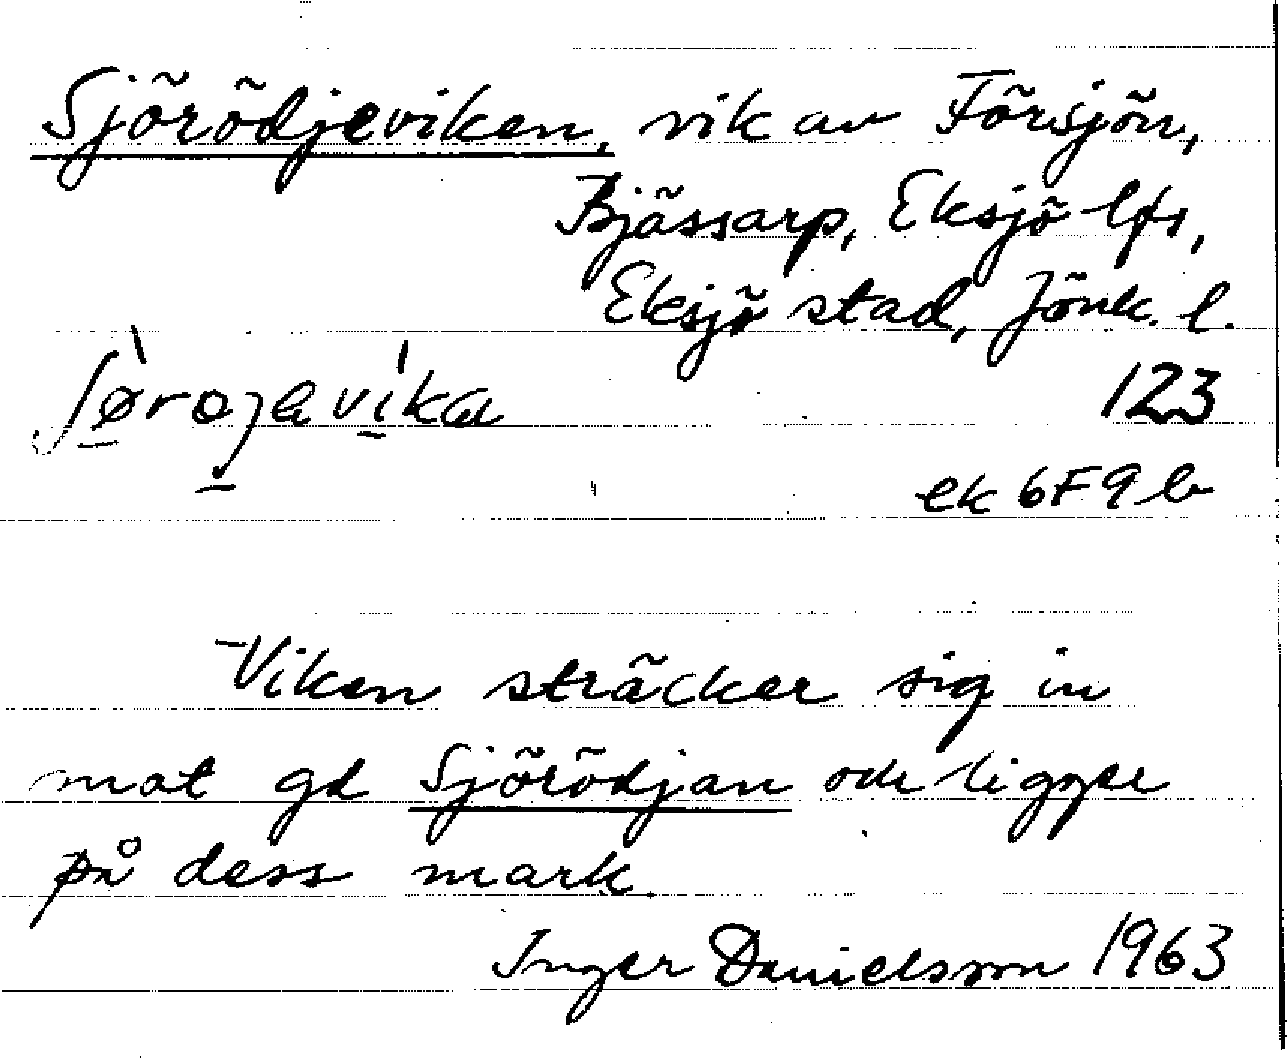 Sjörödjeviken, vik av Försjön,
Bjässarp, Eksjö lfs,
Eksjö stad, Jönk. l.
123
ek 6F9b
Viken sträcker sig in
mot gd Sjörödjan och ligger
på dess mark.
Inger Danielsson 1963